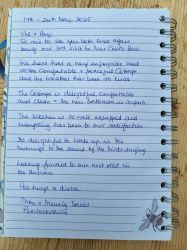 17th - 24th May 2025
Val & Guy
So nice to see you both once again
being our 3rd visit to New
We have had a very enjoyable next
week. Comfortable & peaceful Cottage
and the weather has been so kind
The Cottage is delightful, comfortable
and clean + the new bathroom is superb
The kitchen is so well equipped and
everything has been to our satisfaction
Its delightful to wake up in the
mornings to the sound of the birds singing
Looking forward to our next visit in
the Autumn